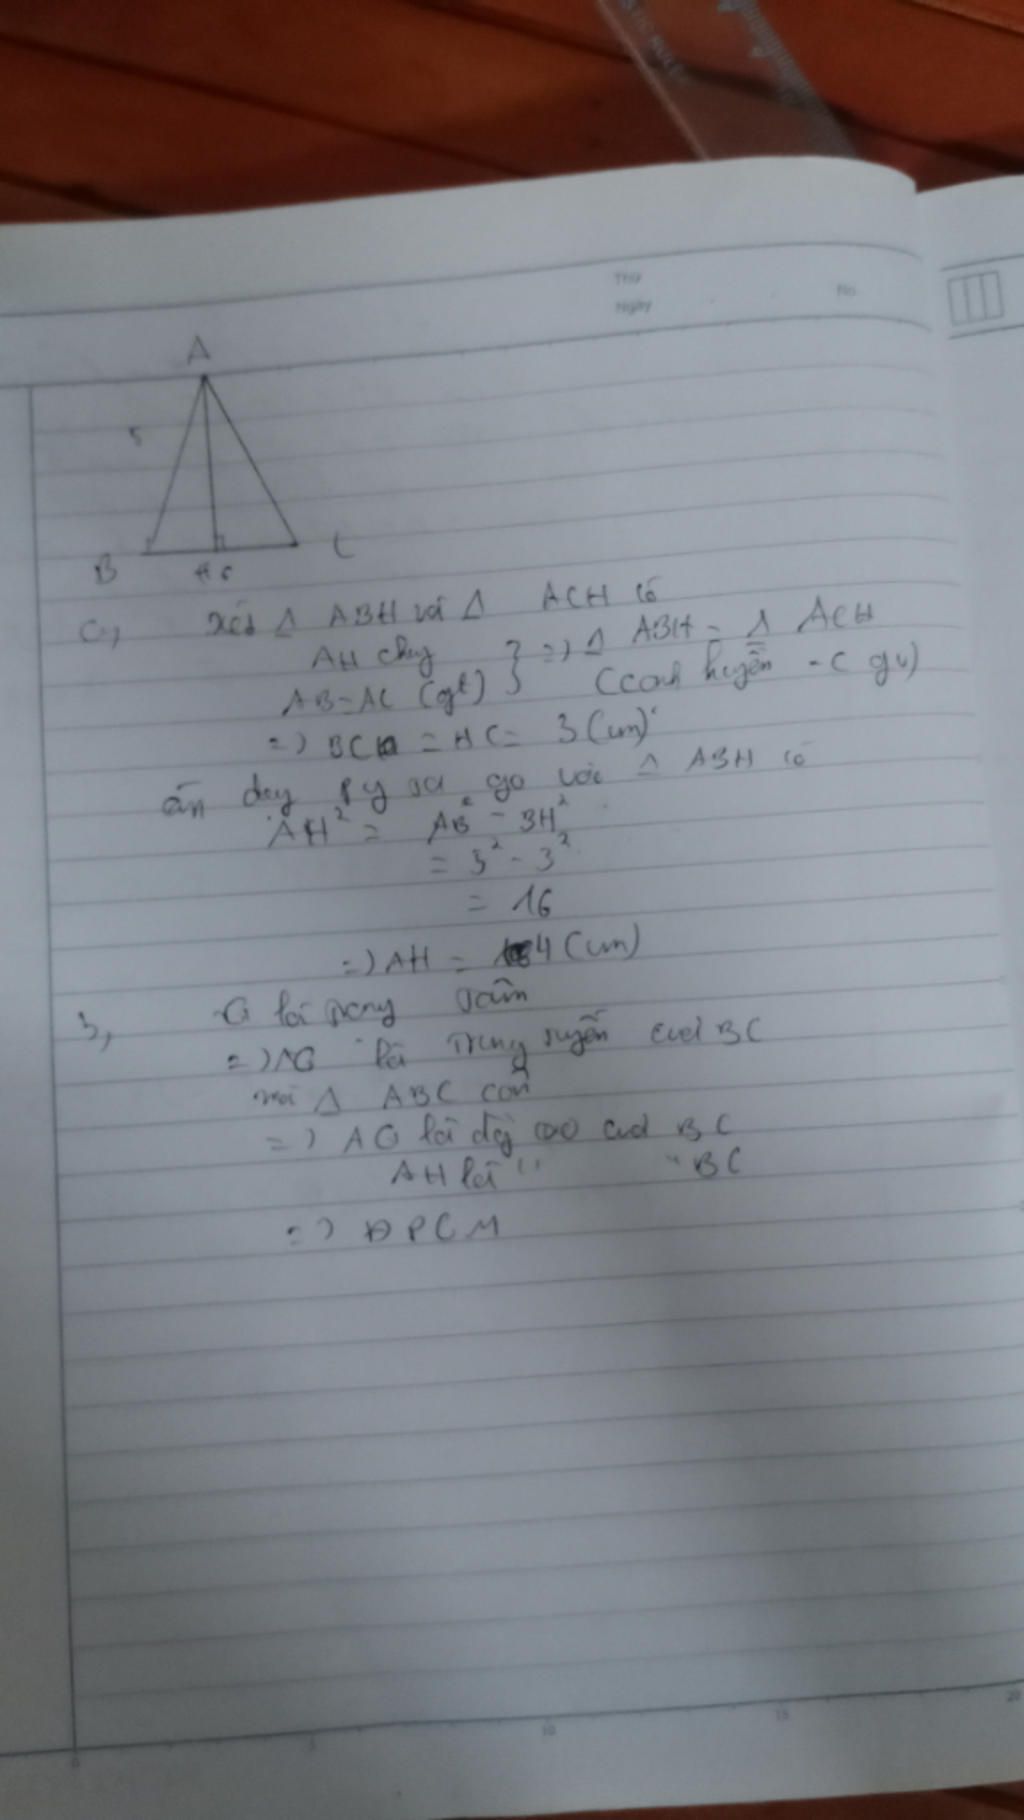 Thứ
Ngày
No.
A
5
B
H 6
C
a, xét Δ ABH và Δ ACH có
AH chung
AB = AC (gt)
} => Δ ABH = Δ ACH
(cạnh huyền - C gv)
=> BH = HC = 3 (cm)
áp dụng Py ta go với Δ ABH có
AH² = AB² - BH²
= 5² - 3²
= 16
=> AH = 4 (cm)
b, G là trọng tâm
=> AG là trung tuyến của BC
mà Δ ABC cân
=> AG là đg cao của BC
AH là " " BC
=> ĐPCM
0
5
10
15
20